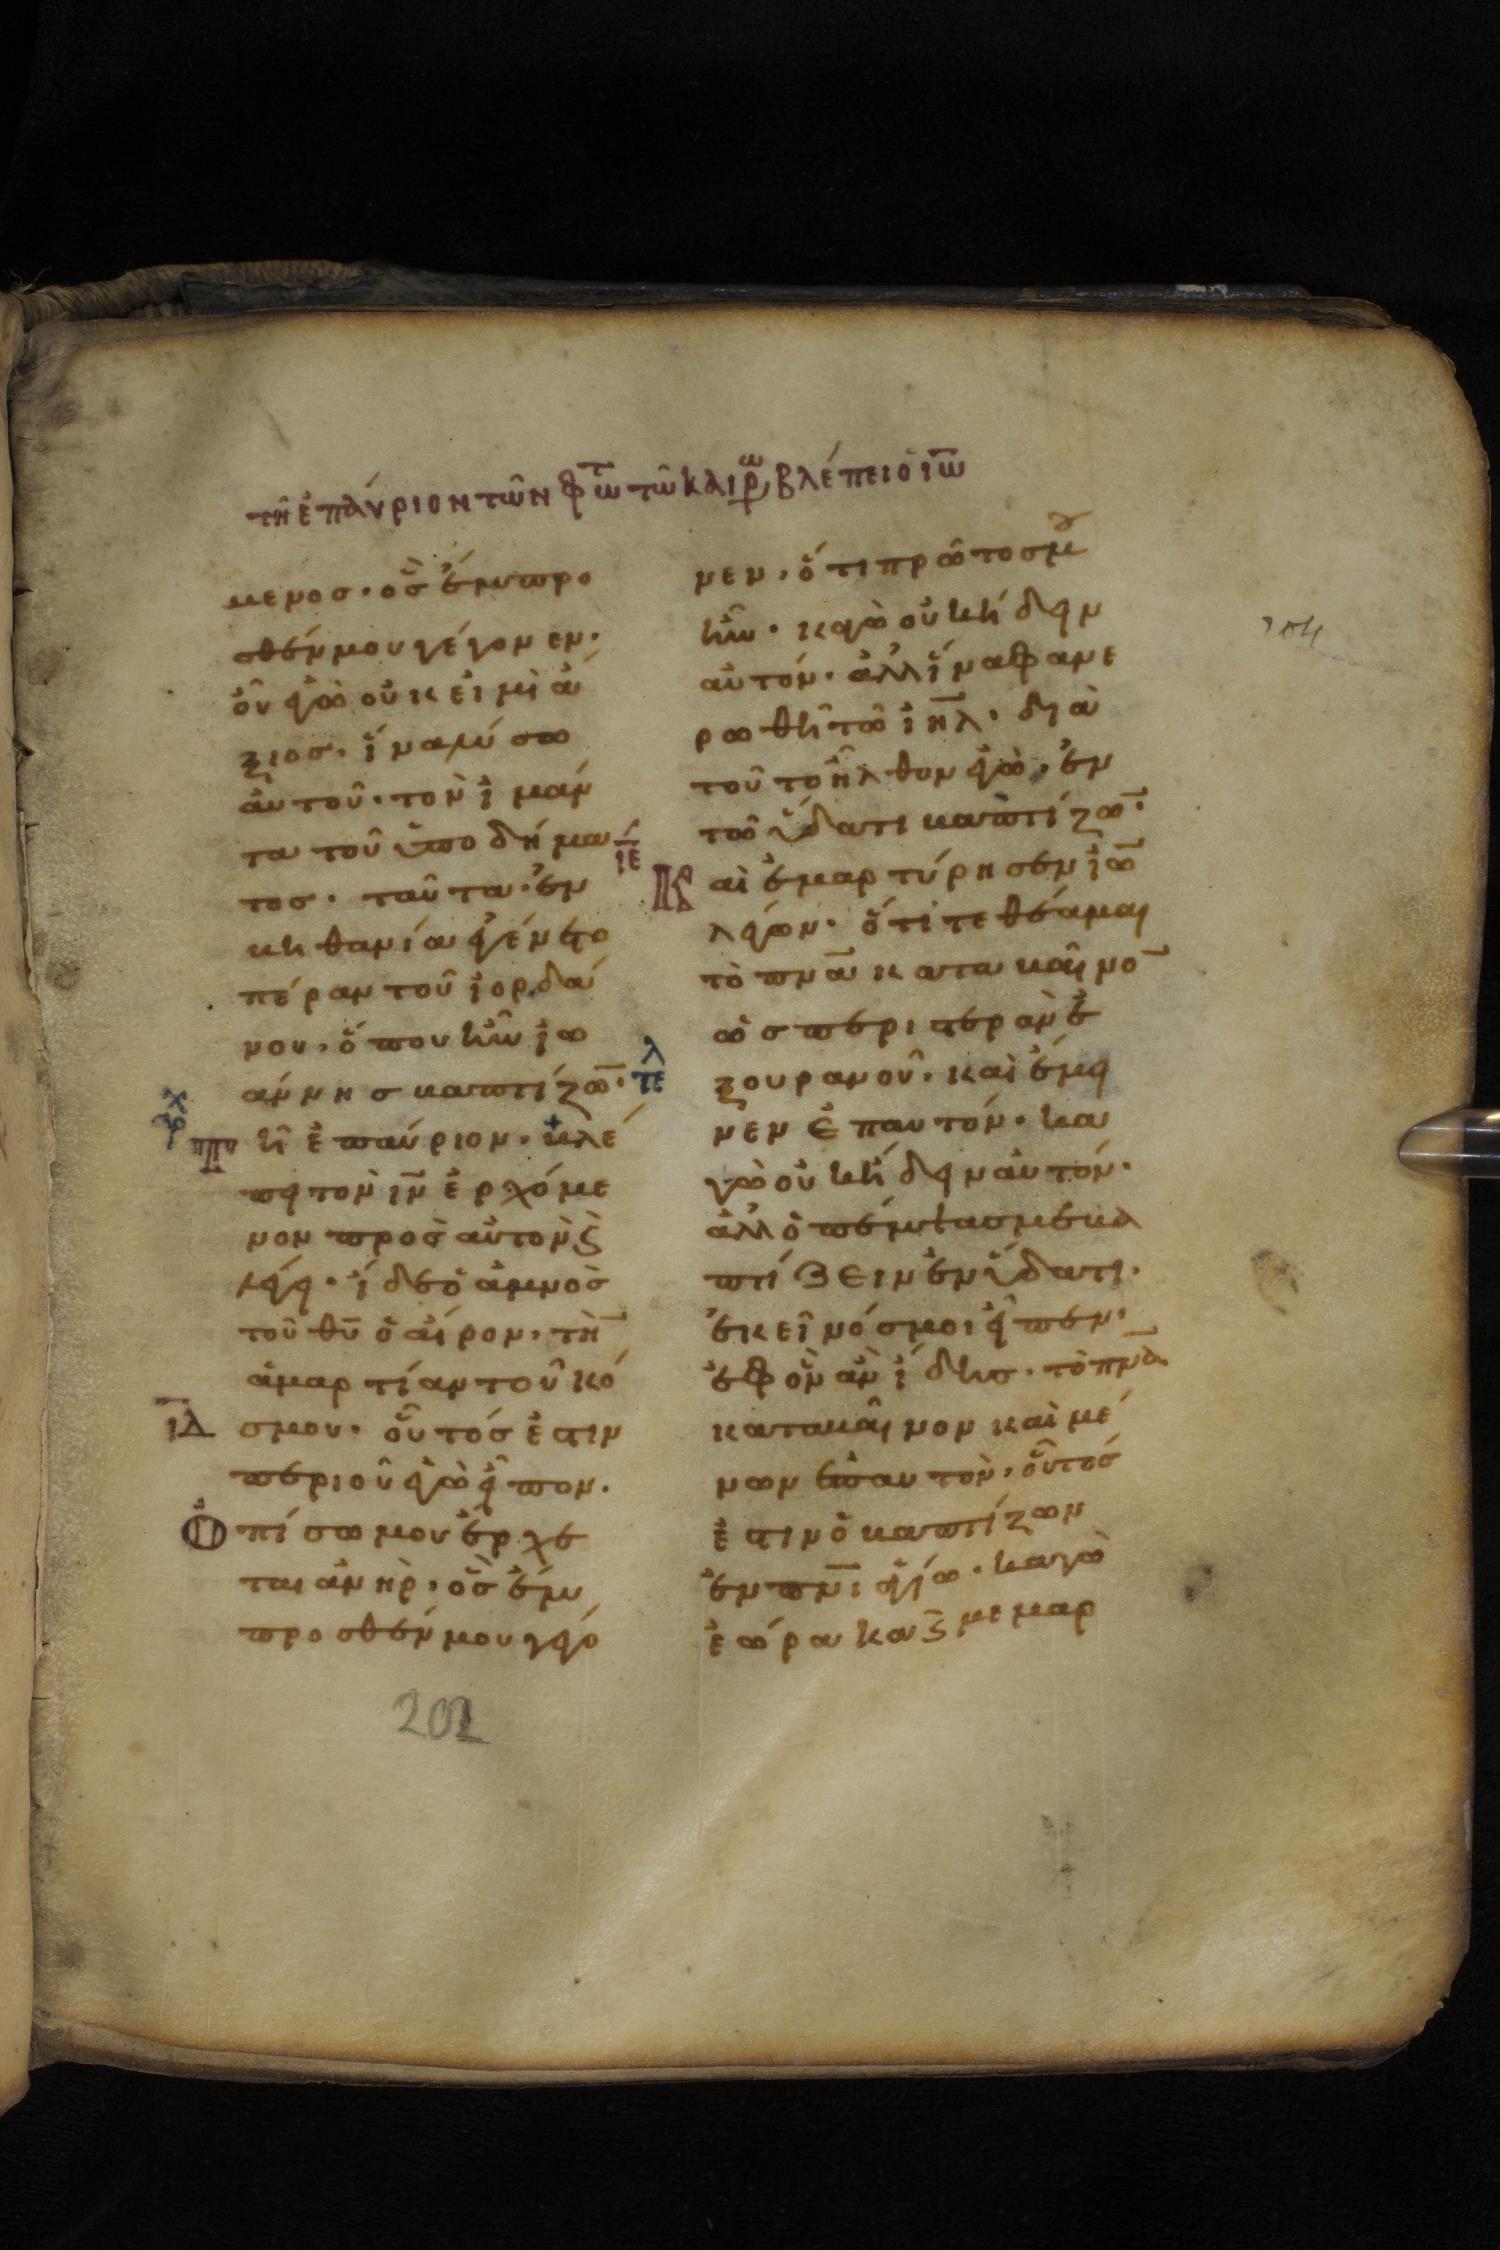 τῆ ἐπάυριον τῶν φώτ τῶ καιρῶ βλέπει ὁ ἰω̅
μενος· οὗς ἔμπρο
σθέν μου γέγονεν·
οὗν ἐγὼ οὐκ εἰμὶ ἄ
ξιος· ἵνα λύσω
ἀυτοῦ· τὸν ἱμάν
τα τοῦ ὑποδήμα
τος· ταῦτα ἐν
βηθανία ἐγένετο
πέραν τοῦ ἰορδά
νου, ὅπου ἦν ἰω
άννης βαπτίζω̅·
τε̅λ
ιε̅
ἀρχ
Τῆ ἐπάυριον· βλέ
πει τὸν ιν̅ ἐρχόμε
νον πρὸς αὐτὸν (και)
λέγει· ἴδε ὁ ἀμνὸς
τοῦ θυ̅ ὁ αἴρον· τὴ̅
ἁμαρτίαν τοῦ κό
ιδ̅
σμου· οὗτός ἐστιν
περι οὗ ἐγὼ εἶπον·
Ὀπίσω μου ἔρχε
ται ἀνὴρ, ὃς ἔμ
προσθέν μου γεγό
νεν, ὅτι πρῶτός μου
ἦν· καγὼ οὐκ ἤδειν
αὐτόν· ἀλλ ἵνα φανε
ρωθῆ τῶ ἰηλ̅· διὰ
τοῦτο ἦλθον ἐγὼ· ἐν
τῶ ὕδατι βαπτίζω̅·
Καὶ ἐμαρτύρησεν ἰω̅
λέγων· ὅτι τεθέαμαι
τὸ πνα̅ καταβαῖνο̅
ὡς περιστερὰν ἐ
ξ ουρανοῦ· καὶ ἔμει
νεν ἐπ αυτόν· κα
γὼ οὐκ ἤδειν αὐτόν·
ἀλλ ὁ πέμψας με βα
πτίζειν ἐν ὕδατι·
ἐκεῖνός μοι εἶπεν·
ἐφ ὃν ἂν ἴδης· τὸ πνα̅
καταβαῖνον καὶ μέ
νων ἐπ αυτὸν, οὗτός
ἐστιν ὁ βαπτίζων
ἐν πνι̅ ἁγίω· καγὼ
ἑώρακα (και) μεμαρ
104
202